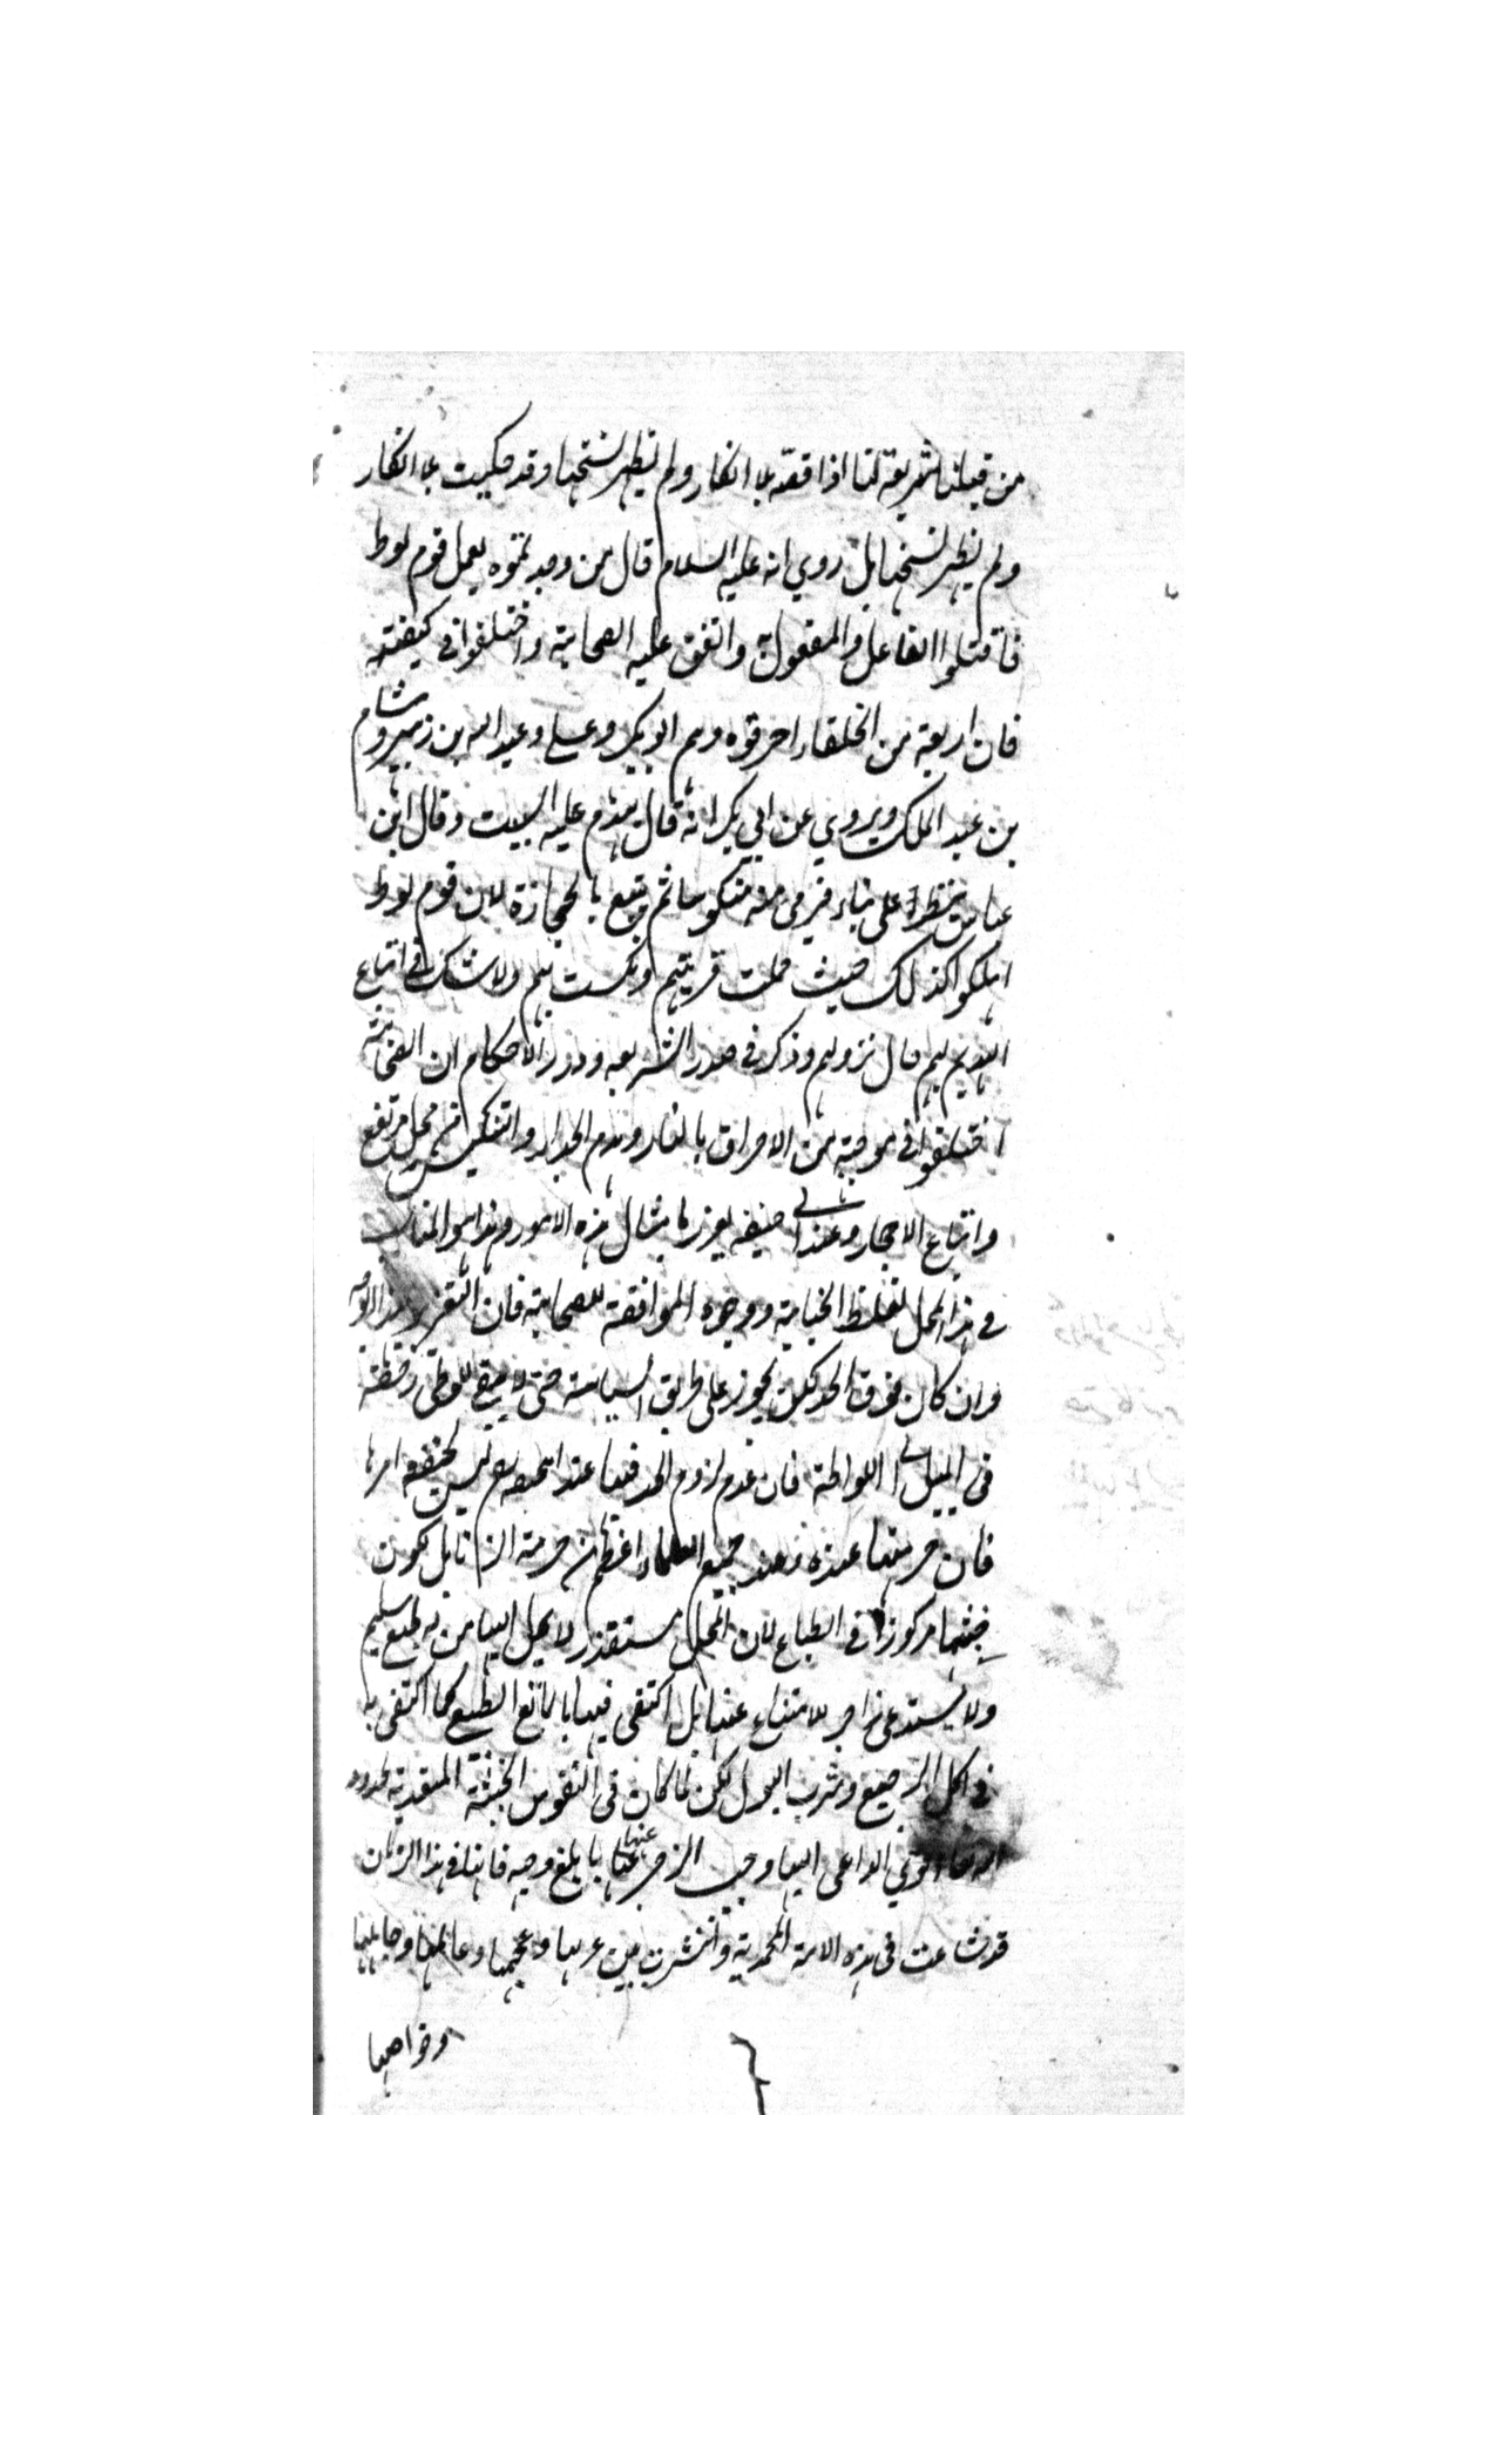 من قبلنا شريعة لنا اذا قصّه بلا انكار ولم يظهر نسخها وقد حكيت بلا انكار
ولم يظهر نسخها بل روي انه عليه السلام قال من وجدتموه يعمل قوم لوط
فاقتلوا الفاعل والمفعول به واتفق عليه الصحابة واختلفوا في كيفيته
فان اربعة من الخلفاء احرقوه وهم ابو بكر وعلي وعبد الله بن زبير وهشام
بن عبد الملك ويروي عن ابي بكر انه قال يهدم عليه البيت وقال ابن
عباس ينظر اعلى بناء فيرمى منه منكوسا ثم يتبع بالحجارة لان قوم لوط
اهلكوا كذلك حيث حملت قريتهم ونكست بهم ولا شك في اتباع
الهديم بهم حال نزولهم وذكر في صدر الشريعه ودرر الاحكام ان الصحابة
اختلفوا في موجبه من الاحراق بالنار وهدم الجدار والتنكيس من محل مرتفع
واتباع الاحجار وعند ابي حنيفه يعزر بامثال هذه الامور وهذا هو المناسب
في هذا المحل لغلظ الجناية ووجوه الموافقة للصحابة فان التعزير بهذا الوجه
وان كان فوق الحد لكن يجوز على طريق السياسة حتى لا يبقى للوطي رخصة
في الميل الى اللواطة فان عدم لزوم الحد فيها عند ابي حنيفه ليس لخفة امرها
فان حرمتها عنده وعند جميع العلماء اغلظ من حرمة الزنا بل لكون
خبثها مركوزا في الطباع لان المحل مستقذر لا يميل اليها من له طبع سليم
ولا يستدعي زاجر للامتناع عنها بل اكتفى فيها بالمانع الطبع كما اكتفى به
في اكل الرجيع وشرب البول لكن لما كان في النفوس الخبيثة المتعدية لحدود
الله تعا قوي الداعي اليها وجب الزجر عنها با بلغ وجه فانها في هذا الزمان
قد شاعت في هذه الامة المحمدية وانتشرت بين عربها وعجمها وعالمها وجاهلها
وخواصها